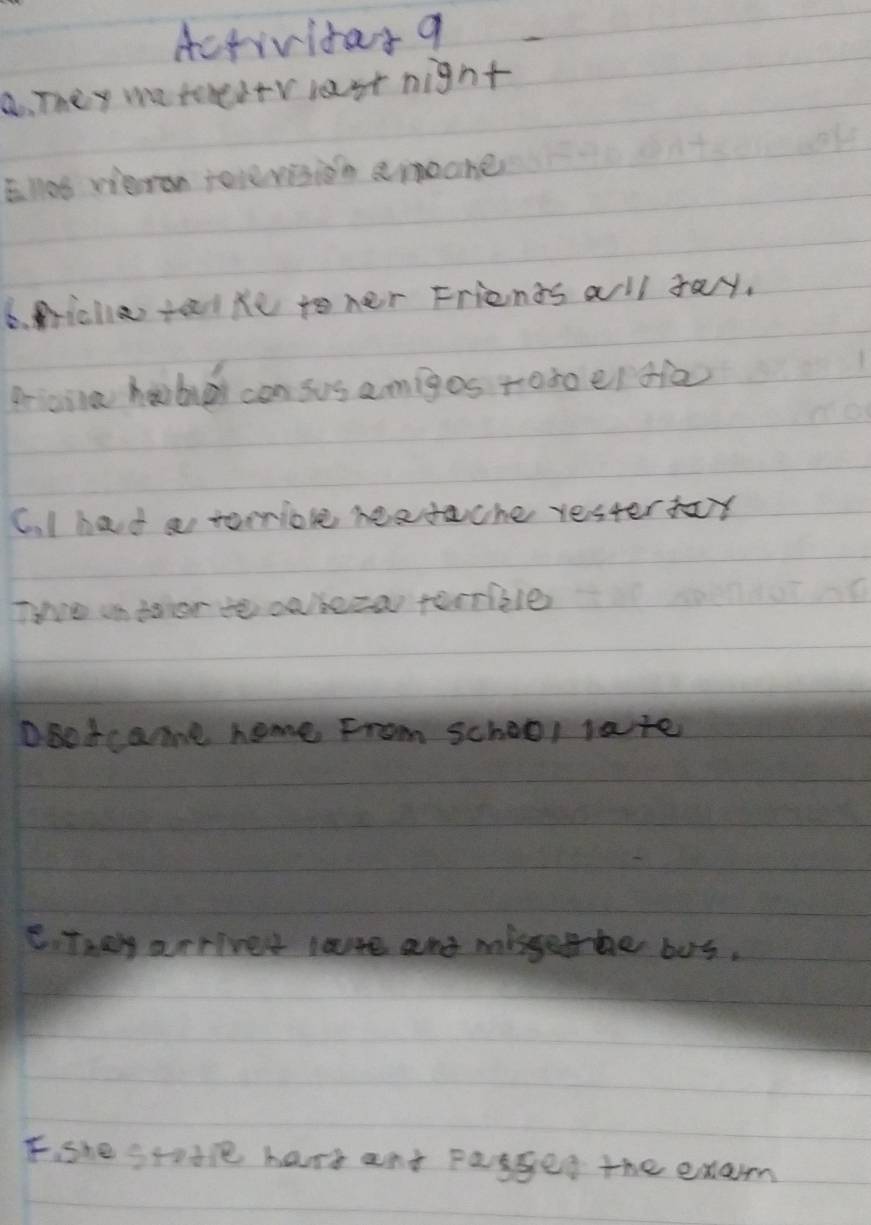 Actividad 9
a. They watched tv last night
Ellos vieron televisión anoche
b. Pricila talke to her Friends all day.
Pricila habló con sus amigos todo el día
C. I had a terrible headache yesterday
Tuve un dolor de cabeza terrible
D. came home From school late
e. They arrived late and missed the bus.
F. she studie hard and Passed the exam